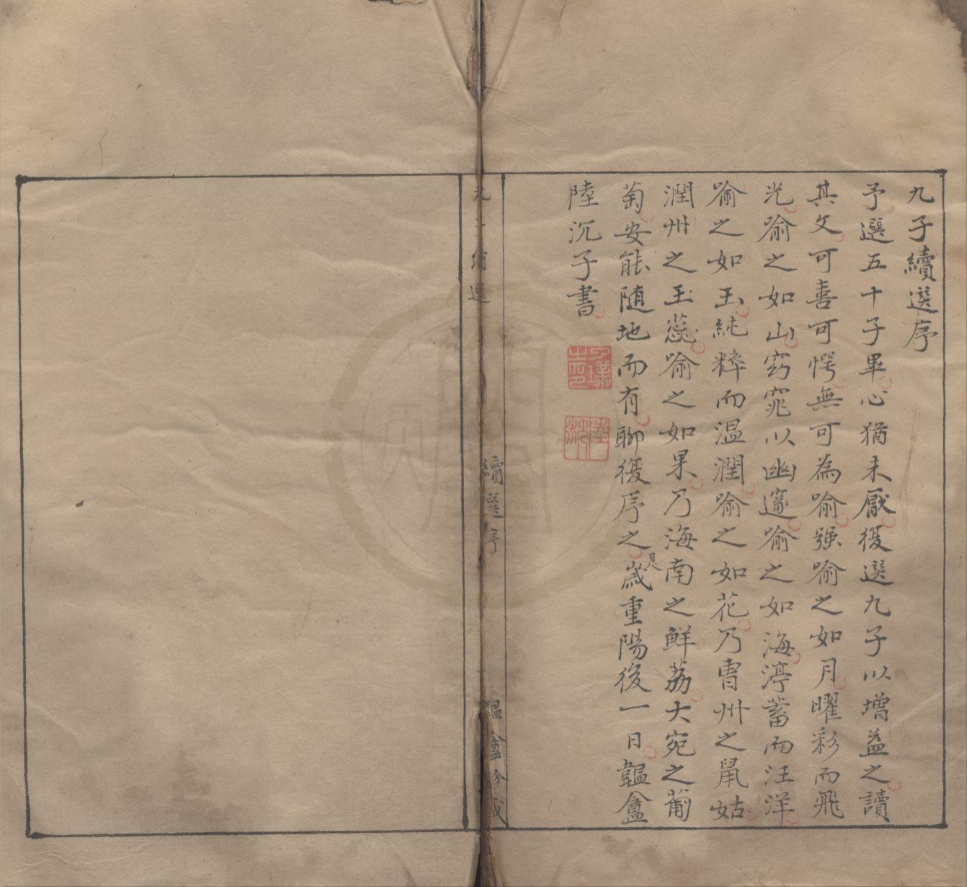 九子續選序
予選五十子畢心猶未厭復選九子以增益之讀
其文可喜可愕無可為喻强喻之如月曜彩而飛
光喻之如山窈窕以幽邃喻之如海渟蓄而汪洋
喻之如玉純粹而温潤喻之如花乃曺州之鼠姑
潤州之玉蕊喻之如果乃海南之鮮荔大宛之葡
萄安能随地而有聊復序之是歲重陽後一日韞龕
陸沉子書
九子續選
續選序
韞龕珍藏